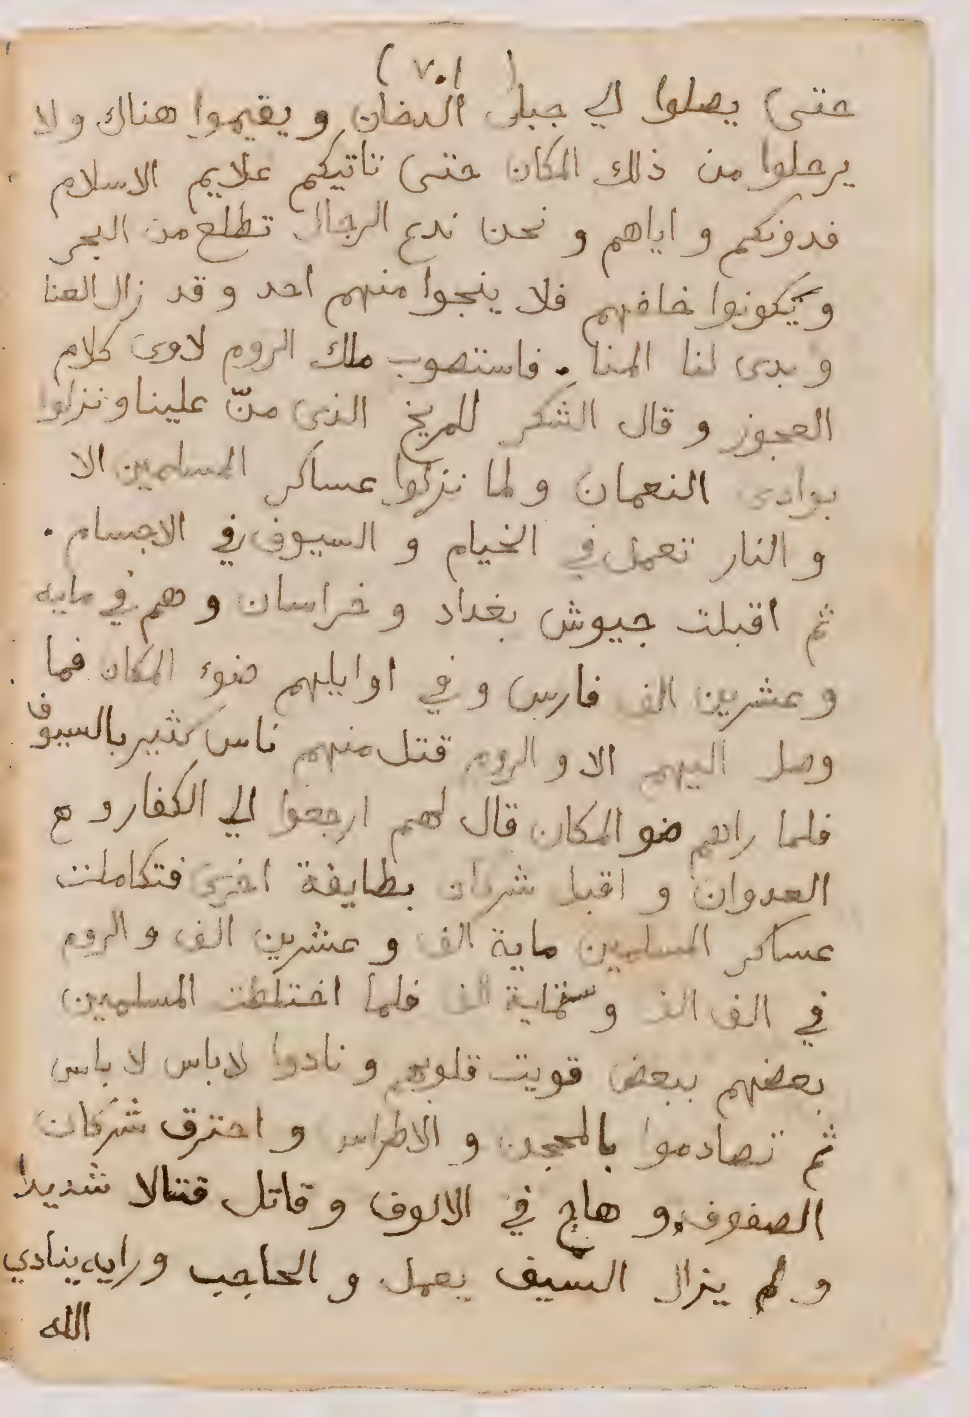 (٧٠١)
حتى يصلوا الي جبل الدخان ويقيموا هناك ولا
يرحلوا من ذلك المكان حتى تاتيكم علايم الاسلام
فدونكم و اياهم و نحن ندع الرجال تطلع من البحر
ويكونوا خلفهم فلا ينجوا منهم احد و قد زال العنا
و بدى لنا المنا . فاستصوب ملك الروم لاوى كلام
العجوز و قال الشكر للمريخ الذى منّ علينا و نزلوا
بوادى النعمان و لما نزلوا عساكر المسلمين الا
و النار تعمل في الخيام و السيوف في الاجسام .
ثم اقبلت جيوش بغداد و خراسان و هم في مايه
و عشرين الف فارس و في اوايلهم ضوء المكان فما
وصل اليهم الا و الروم قتل منهم ناس كثير بالسيوف
فلما راهم ضو المكان قال لهم ارجعوا الي الكفار و
العدوان و اقبل شركان بطايفة اخرى فتكاملت
عساكر المسلمين ماية الف و عشرين الف و الروم
في الف الف و ستماية الف فلما اختلطت المسلمين
بعضهم ببعض قويت قلوبهم و نادوا لاباس لاباس
ثم تصادموا و احترق شركان
الصفوف و هاج في الالوف و قاتل قتالا شديدا
و لم يزال السيف يعمل و الحاجب ينادي
الله